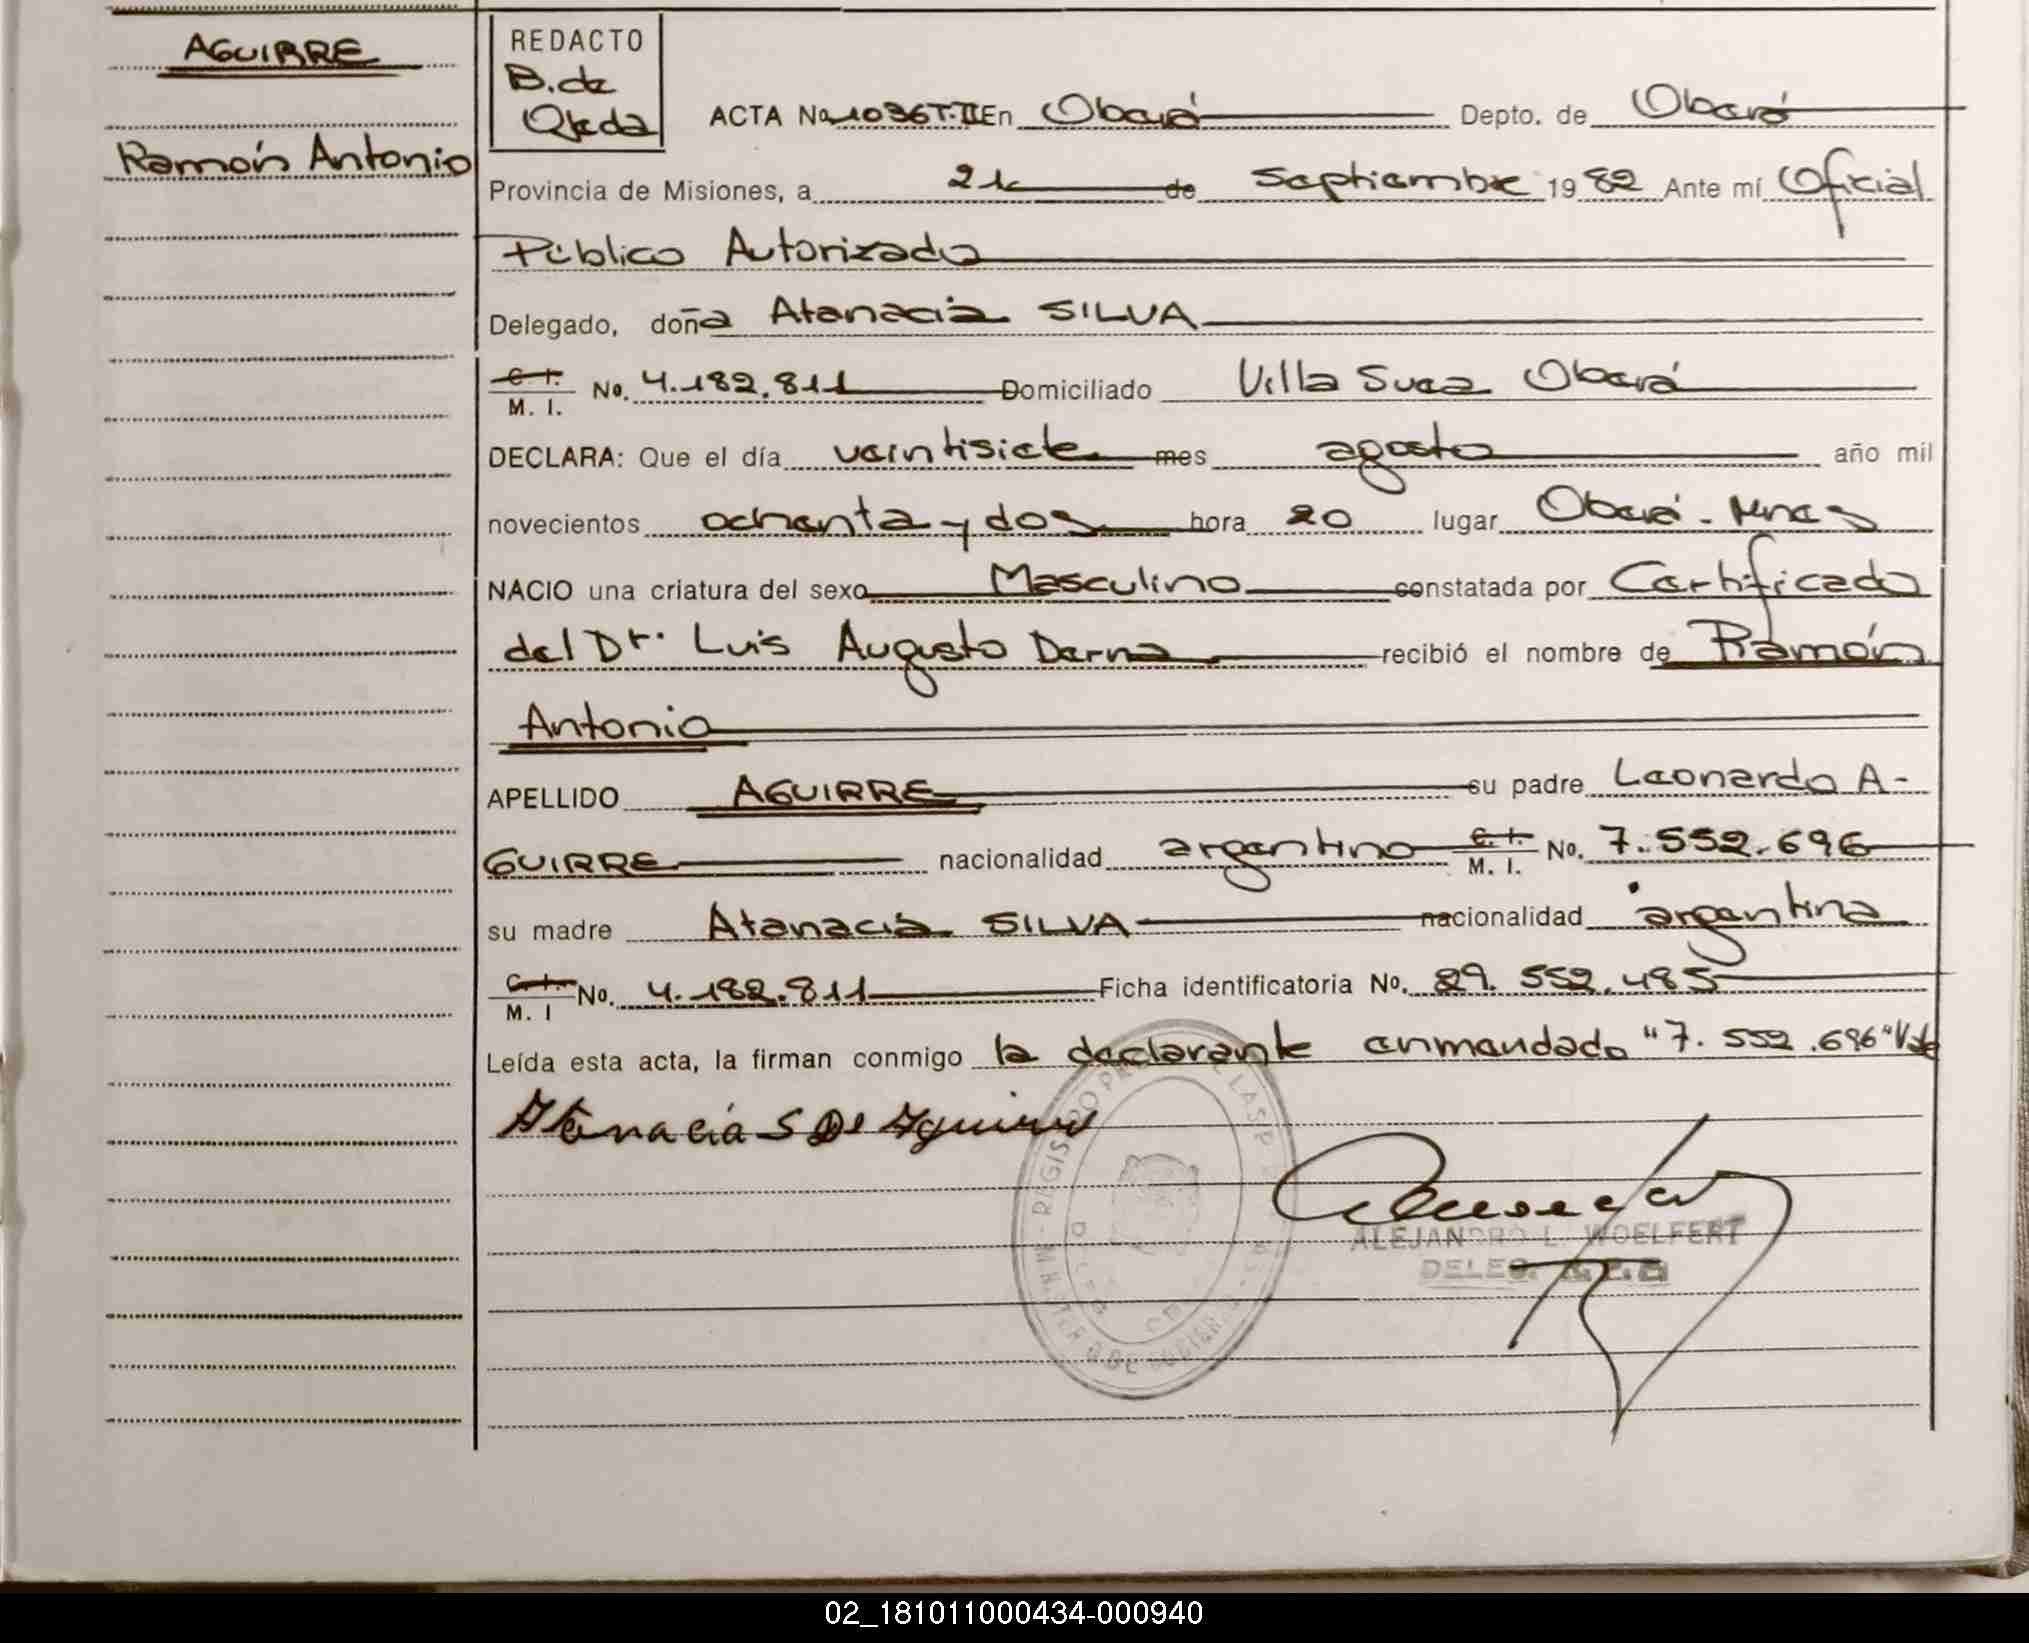 AGUIRRE
Ramón Antonio
REDACTO
B. de
Ojeda
ACTA No. 1036 T. II En Oberá Depto. de Oberá
Provincia de Misiones, a 21 de septiembre 1982 Ante mí Oficial
Público Autorizado
Delegado, doña Atanacia SILVA
C. I. M. I. No. 4.182.811 Domiciliado Villa Suea Oberá
DECLARA: Que el día veintisiete mes agosto año mil
novecientos ochenta y dos hora 20 lugar Oberá - Mnes
NACIO una criatura del sexo Masculino constatada por Certificado
del Dr. Luis Augusto Derna recibió el nombre de Ramón
Antonio
APELLIDO AGUIRRE su padre Leonardo A-
GUIRRE nacionalidad argentino C. I. M. I. No. 7.552.696
su madre Atanacia SILVA nacionalidad argentina
C. I. M. I No. 4.182.811 Ficha identificatoria No. 29.552.485
Leída esta acta, la firman conmigo la declarante enmendado "7.552.696" Vale
Atanacia S De Aguirre
ALEJANDRO L. WOELFERT
DELEG.
02_181011000434-000940